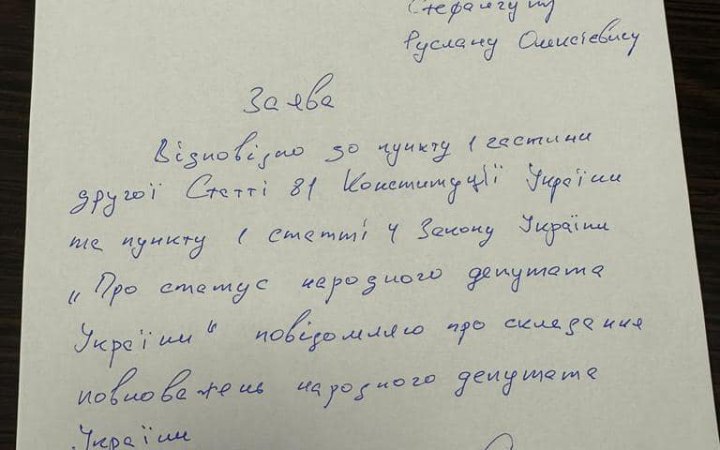 Стефанчуку
Руслану Олексієвичу
Заява
Відповідно до пункту 1 частини
другої Статті 81 Конституції України
та пункту 1 статті 4 Закону України
„Про статус народного депутата
України“ повідомляю про складання
повноважень народного депутата
України